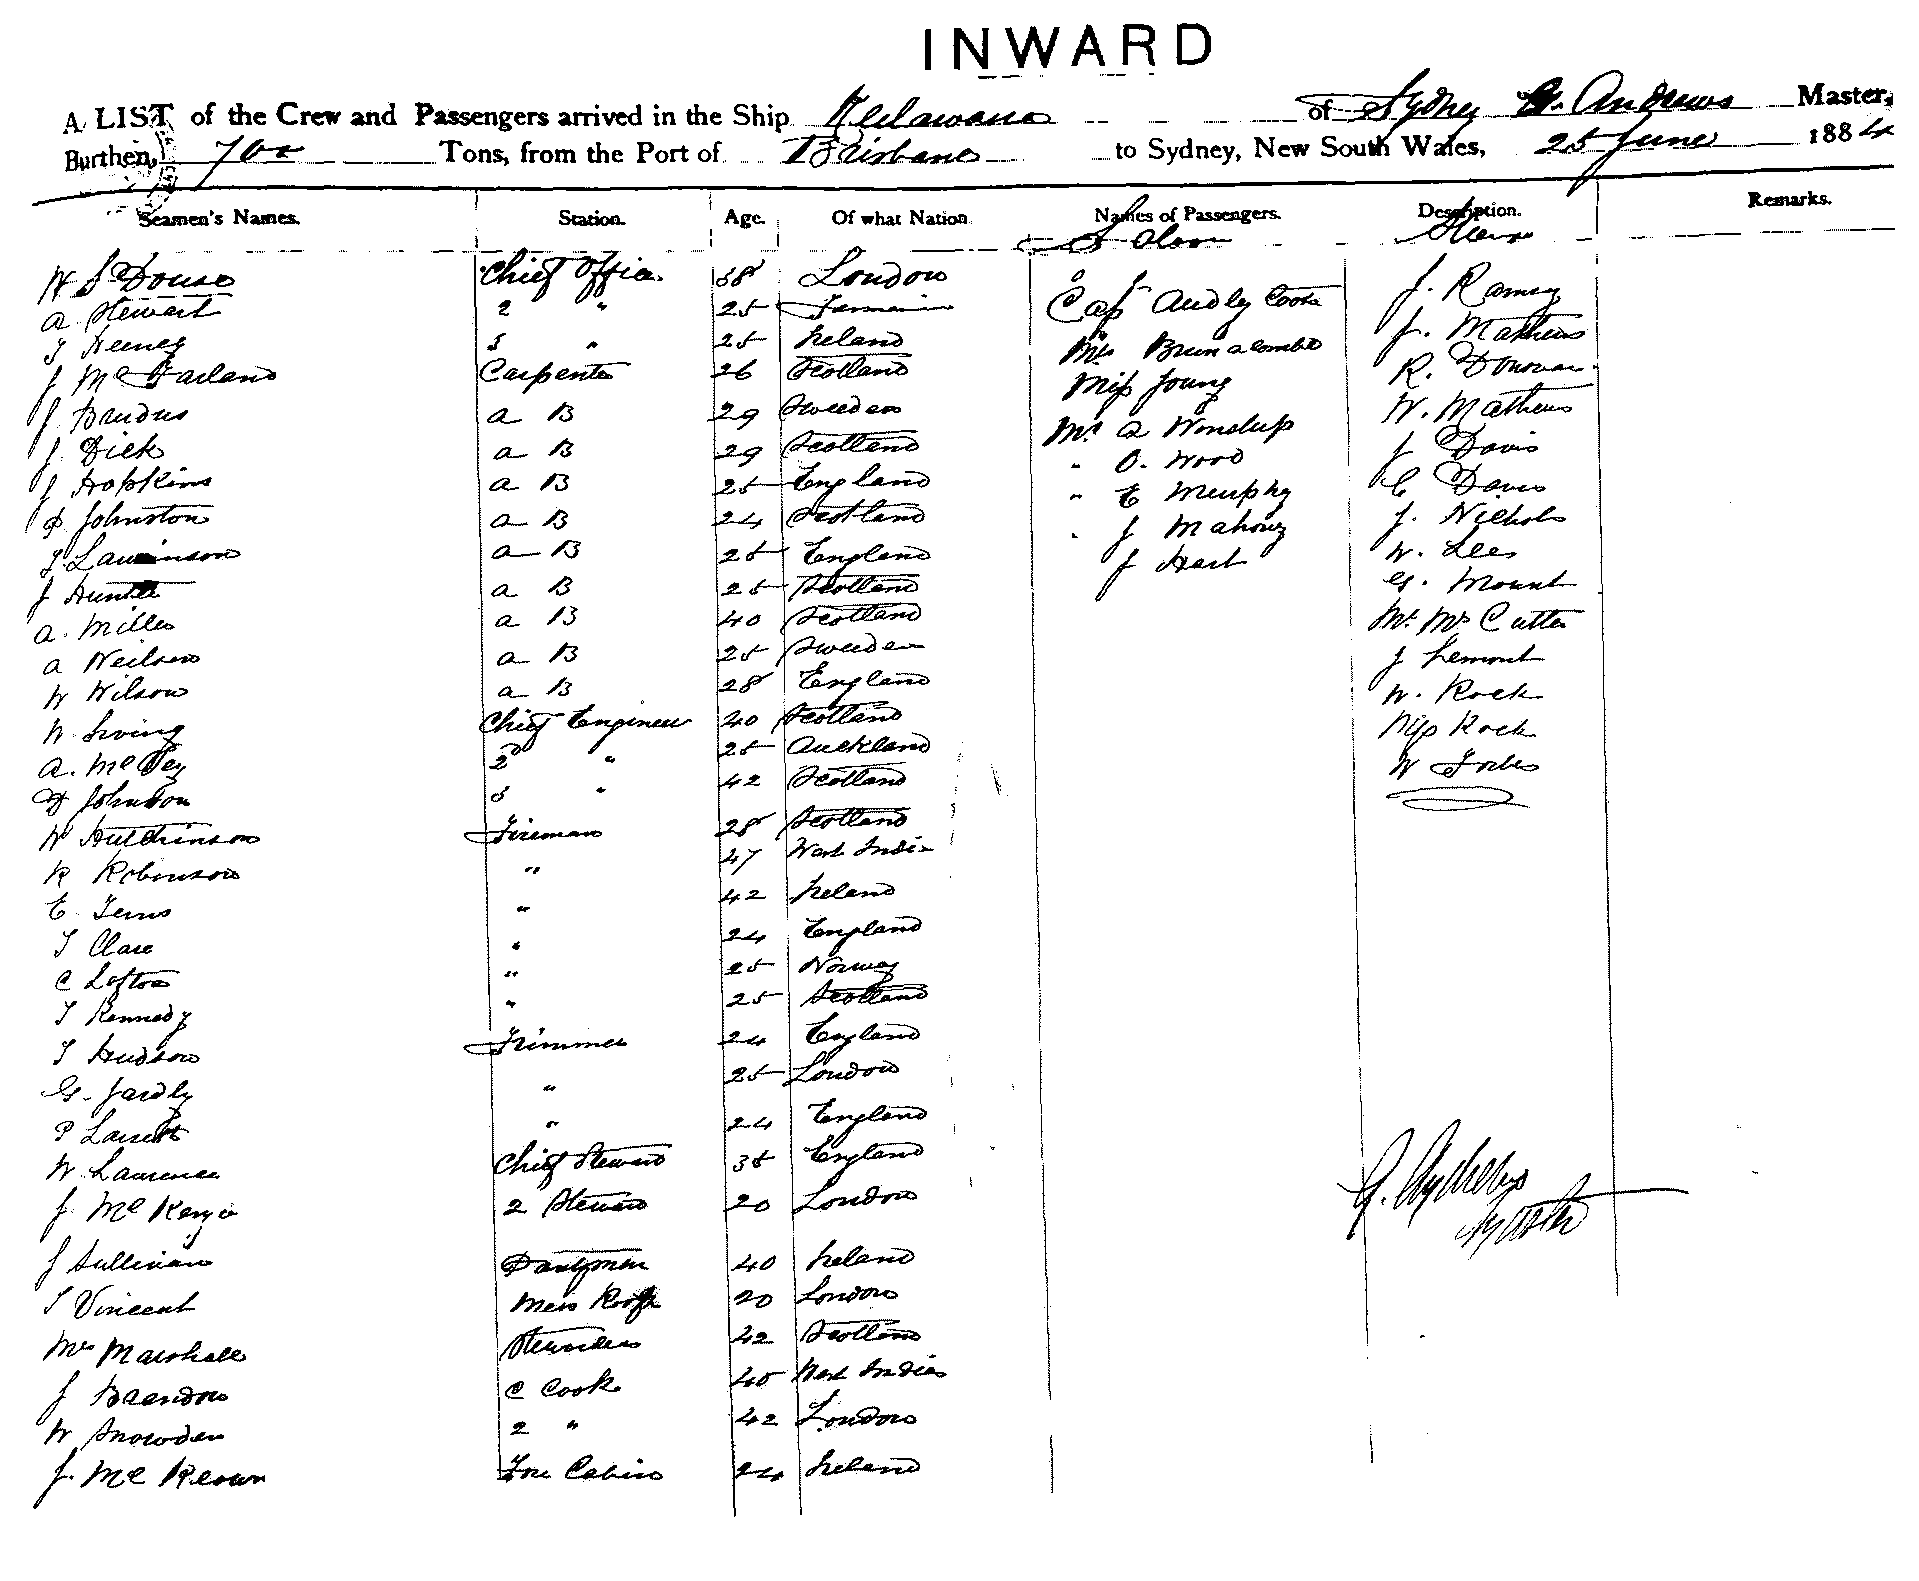 INWARD
A LIST of the Crew and Passengers arrived in the Ship Keilawarra of Sydney G. Andrews Master,
Burthen, 700 Tons, from the Port of Brisbane to Sydney, New South Wales, 25 June 1884
Seamen's Names. Station. Age. Of what Nation Names of Passengers. Description. Remarks.
Saloon
W S Douse Chief Office 38 London Cap Audly Coote J. Ramsy
A Stewart 2 " 25 J. Mathews
T Heeney 3 " 25 Ireland Mrs Brimacombe R. Donovan
J McFarland Carpenter 26 Scotland Miss Young W. Mathews
J Brudus A B 29 Sweeden Mr A Windup J Davis
J Dick A B 29 Scotland " O. Wood C Davis
J Hopkins A B 25 England " E Murphy J. Nichols
D Johnston A B 24 Scotland " J Mahony W. Lees
T A B 25 England J Hart G. Mount
J Hunter A B 25 Scotland Mr McCutter
A. Miller A B 40 Scotland J Lemont
A Neilson A B 25 Sweeden W. Rock
W Wilson A B 28 England Miss Rock
W Irving Chief Engineer 40 Scotland W Forbes
A. 2 " 25 Auckland
D Johnson 3 " 42 Scotland
W Hutchinson Fireman 28 Scotland
R Robinson " 47 West Indie
E. " 42 Ireland
T Clare " 24 England
C Lofton " 25 Norway
T Kennedy " 25 Scotland
T Hudson Trimmer 24 England
G. Yardly " 25 London
P " 24 England
W. Lawrence Chief Steward 35 England
J. McKenzie 2 Steward 20 London
J Sullivan Pantryman 40 Ireland
T Vincent Mess Room 20 London
Mrs Marshall Stewardess 42 Scotland
J Brandon C Cook 40 West Indies
W Snowden 2 " 42 London
J. McKeown Fore Cabin 24 Ireland
G. Andrews
Master